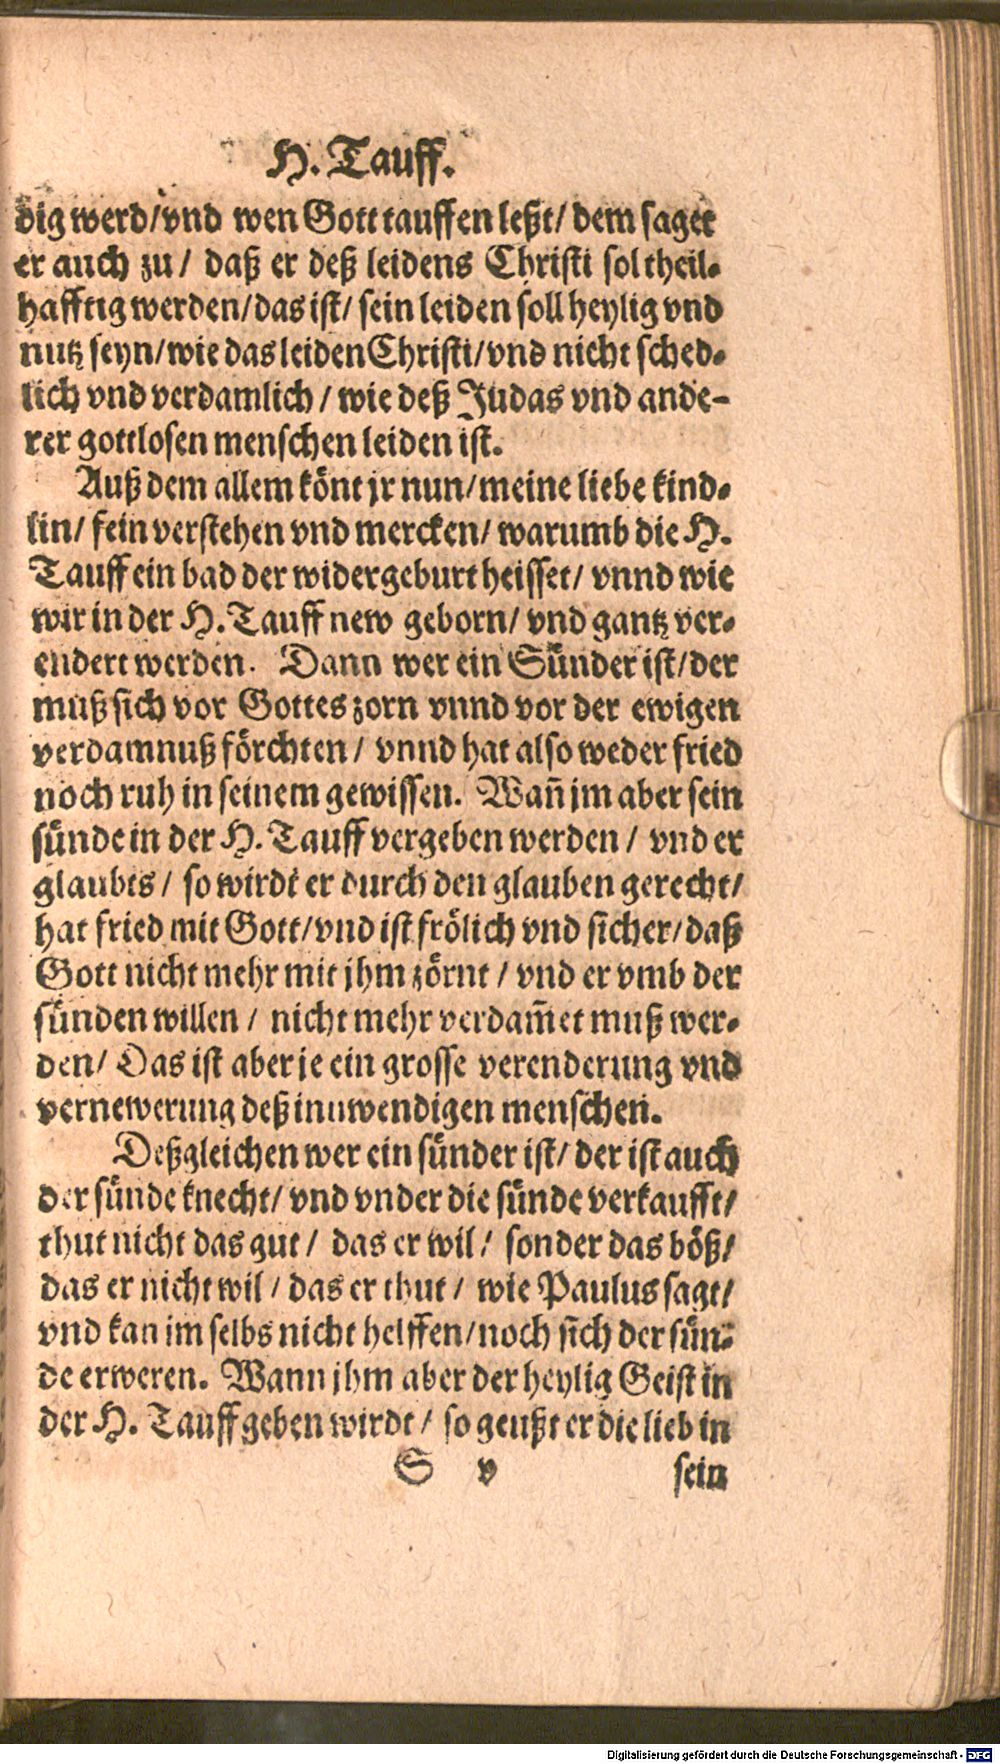 H. Tauff.
dig werd/vnd wen Gott tauffen leßt/ dem saget
er auch zu/ daß er deß leidens Christi sol theil-
hafftig werden/das ist/ sein leiden soll heylig vnd
nutz seyn/wie das leiden Christi/vnd nicht sched-
lich vnd verdamlich/ wie deß Judas vnd ande-
rer gottlosen menschen leiden ist.
Auß dem allem könt jr nun/meine liebe kind-
lin/ fein verstehen vnd mercken/ warumb die H.
Tauff ein bad der widergeburt heisset/ vnnd wie
wir in der H. Tauff new geborn/ vnd gantz ver-
endert werden. Dann wer ein Sünder ist/der
muß sich vor Gottes zorn vnnd vor der ewigen
verdamnuß förchten/ vnnd hat also weder fried
noch ruh in seinem gewissen. Wañ jm aber sein
sünde in der H. Tauff vergeben werden/ vnd er
glaubts/ so wirdt er durch den glauben gerecht/
hat fried mit Gott/vnd ist frölich vnd sicher/daß
Gott nicht mehr mit jhm zörnt/ vnd er vmb der
sünden willen/ nicht mehr verdam̄et muß wer-
den/ Das ist aber je ein grosse verenderung vnd
vernewerung deß innwendigen menschen.
Deßgleichen wer ein sünder ist/ der ist auch
der sünde knecht/ vnd vnder die sünde verkaufft/
thut nicht das gut/ das er wil/ sonder das böß/
das er nicht wil/ das er thut/ wie Paulus sagt/
vnd kan jm selbs nicht helffen/noch sich der sün-
de erweren. Wann jhm aber der heylig Geist in
der H. Tauff geben wirdt/ so geußt er die lieb in
S v sein
Digitalisierung gefördert durch die Deutsche Forschungsgemeinschaft - DFG